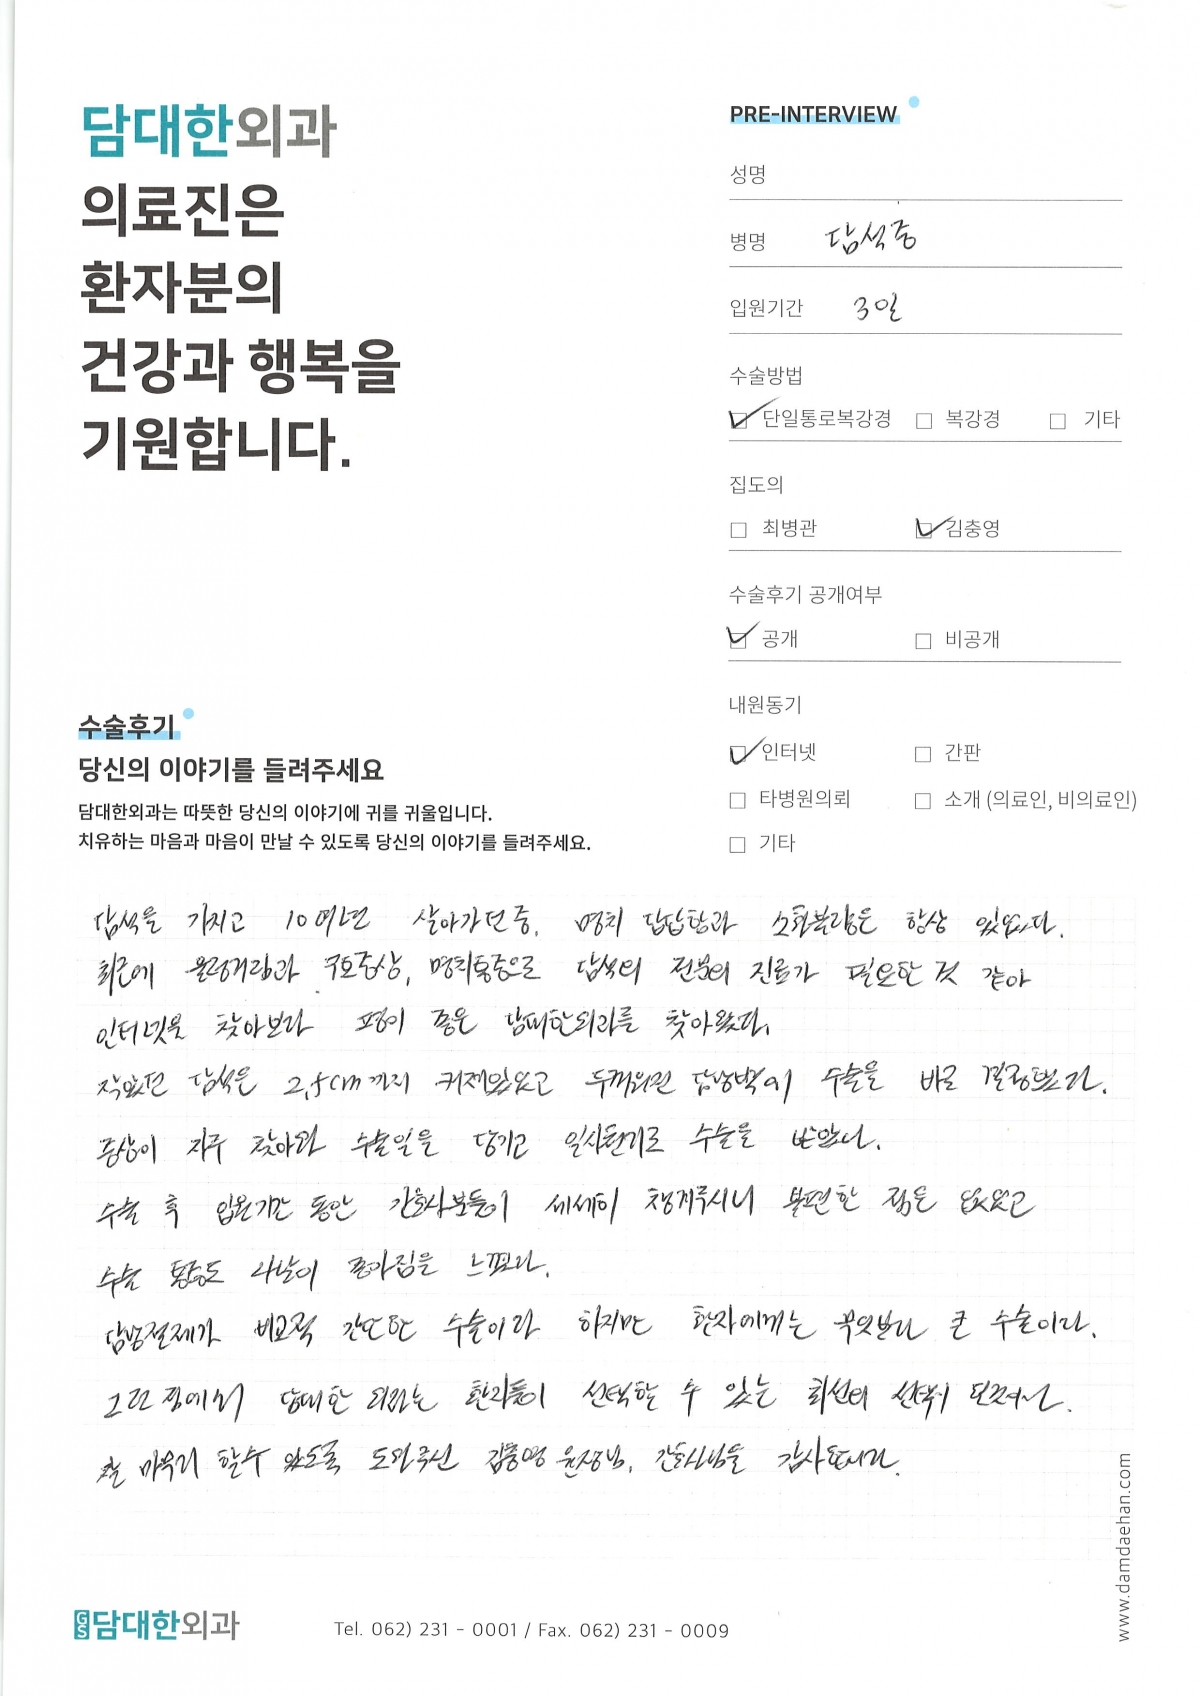 담대한외과
의료진은
환자분의
건강과 행복을
기원합니다.
PRE-INTERVIEW
성명
병명 담석증
입원기간 3일
수술방법
단일통로복강경 복강경 기타
집도의
최병관 김충영
수술후기 공개여부
공개 비공개
내원동기
인터넷 간판
타병원의뢰 소개 (의료인, 비의료인)
기타
수술후기
당신의 이야기를 들려주세요
담대한외과는 따뜻한 당신의 이야기에 귀를 귀울입니다.
치유하는 마음과 마음이 만날 수 있도록 당신의 이야기를 들려주세요.
담석을 가지고 10여년 살아가던 중, 명치 답답함과 소화불량은 항상 있었다.
최근에 울렁거림과 구토증상, 명치통증으로 담석의 전문의 진료가 필요한 것 같아
인터넷을 찾아보다 평이 좋은 담대한외과를 찾아왔다.
작았던 담석은 2.5cm까지 커져있었고 두꺼워진 담낭벽에 수술을 바로 결정했다.
증상이 자주 찾아와 수술일을 당기고 일사천리로 수술을 받았다.
수술 후 입원기간 동안 간호사분들이 세세히 챙겨주시니 불편한 점은 없었고
수술 통증도 나날이 좋아짐을 느꼈다.
담낭절제가 비교적 간단한 수술이라 하지만 환자에게는 무엇보다 큰 수술이다.
그런 점에서 담대한 외과는 환자들이 선택할 수 있는 최선의 선택이
잘 마무리 할수 있도록 도와주신 김충영 원장님, 간호사님들 감사합니다.
GS 담대한외과
Tel. 062) 231 - 0001 / Fax. 062) 231 - 0009
www.damdaehan.com